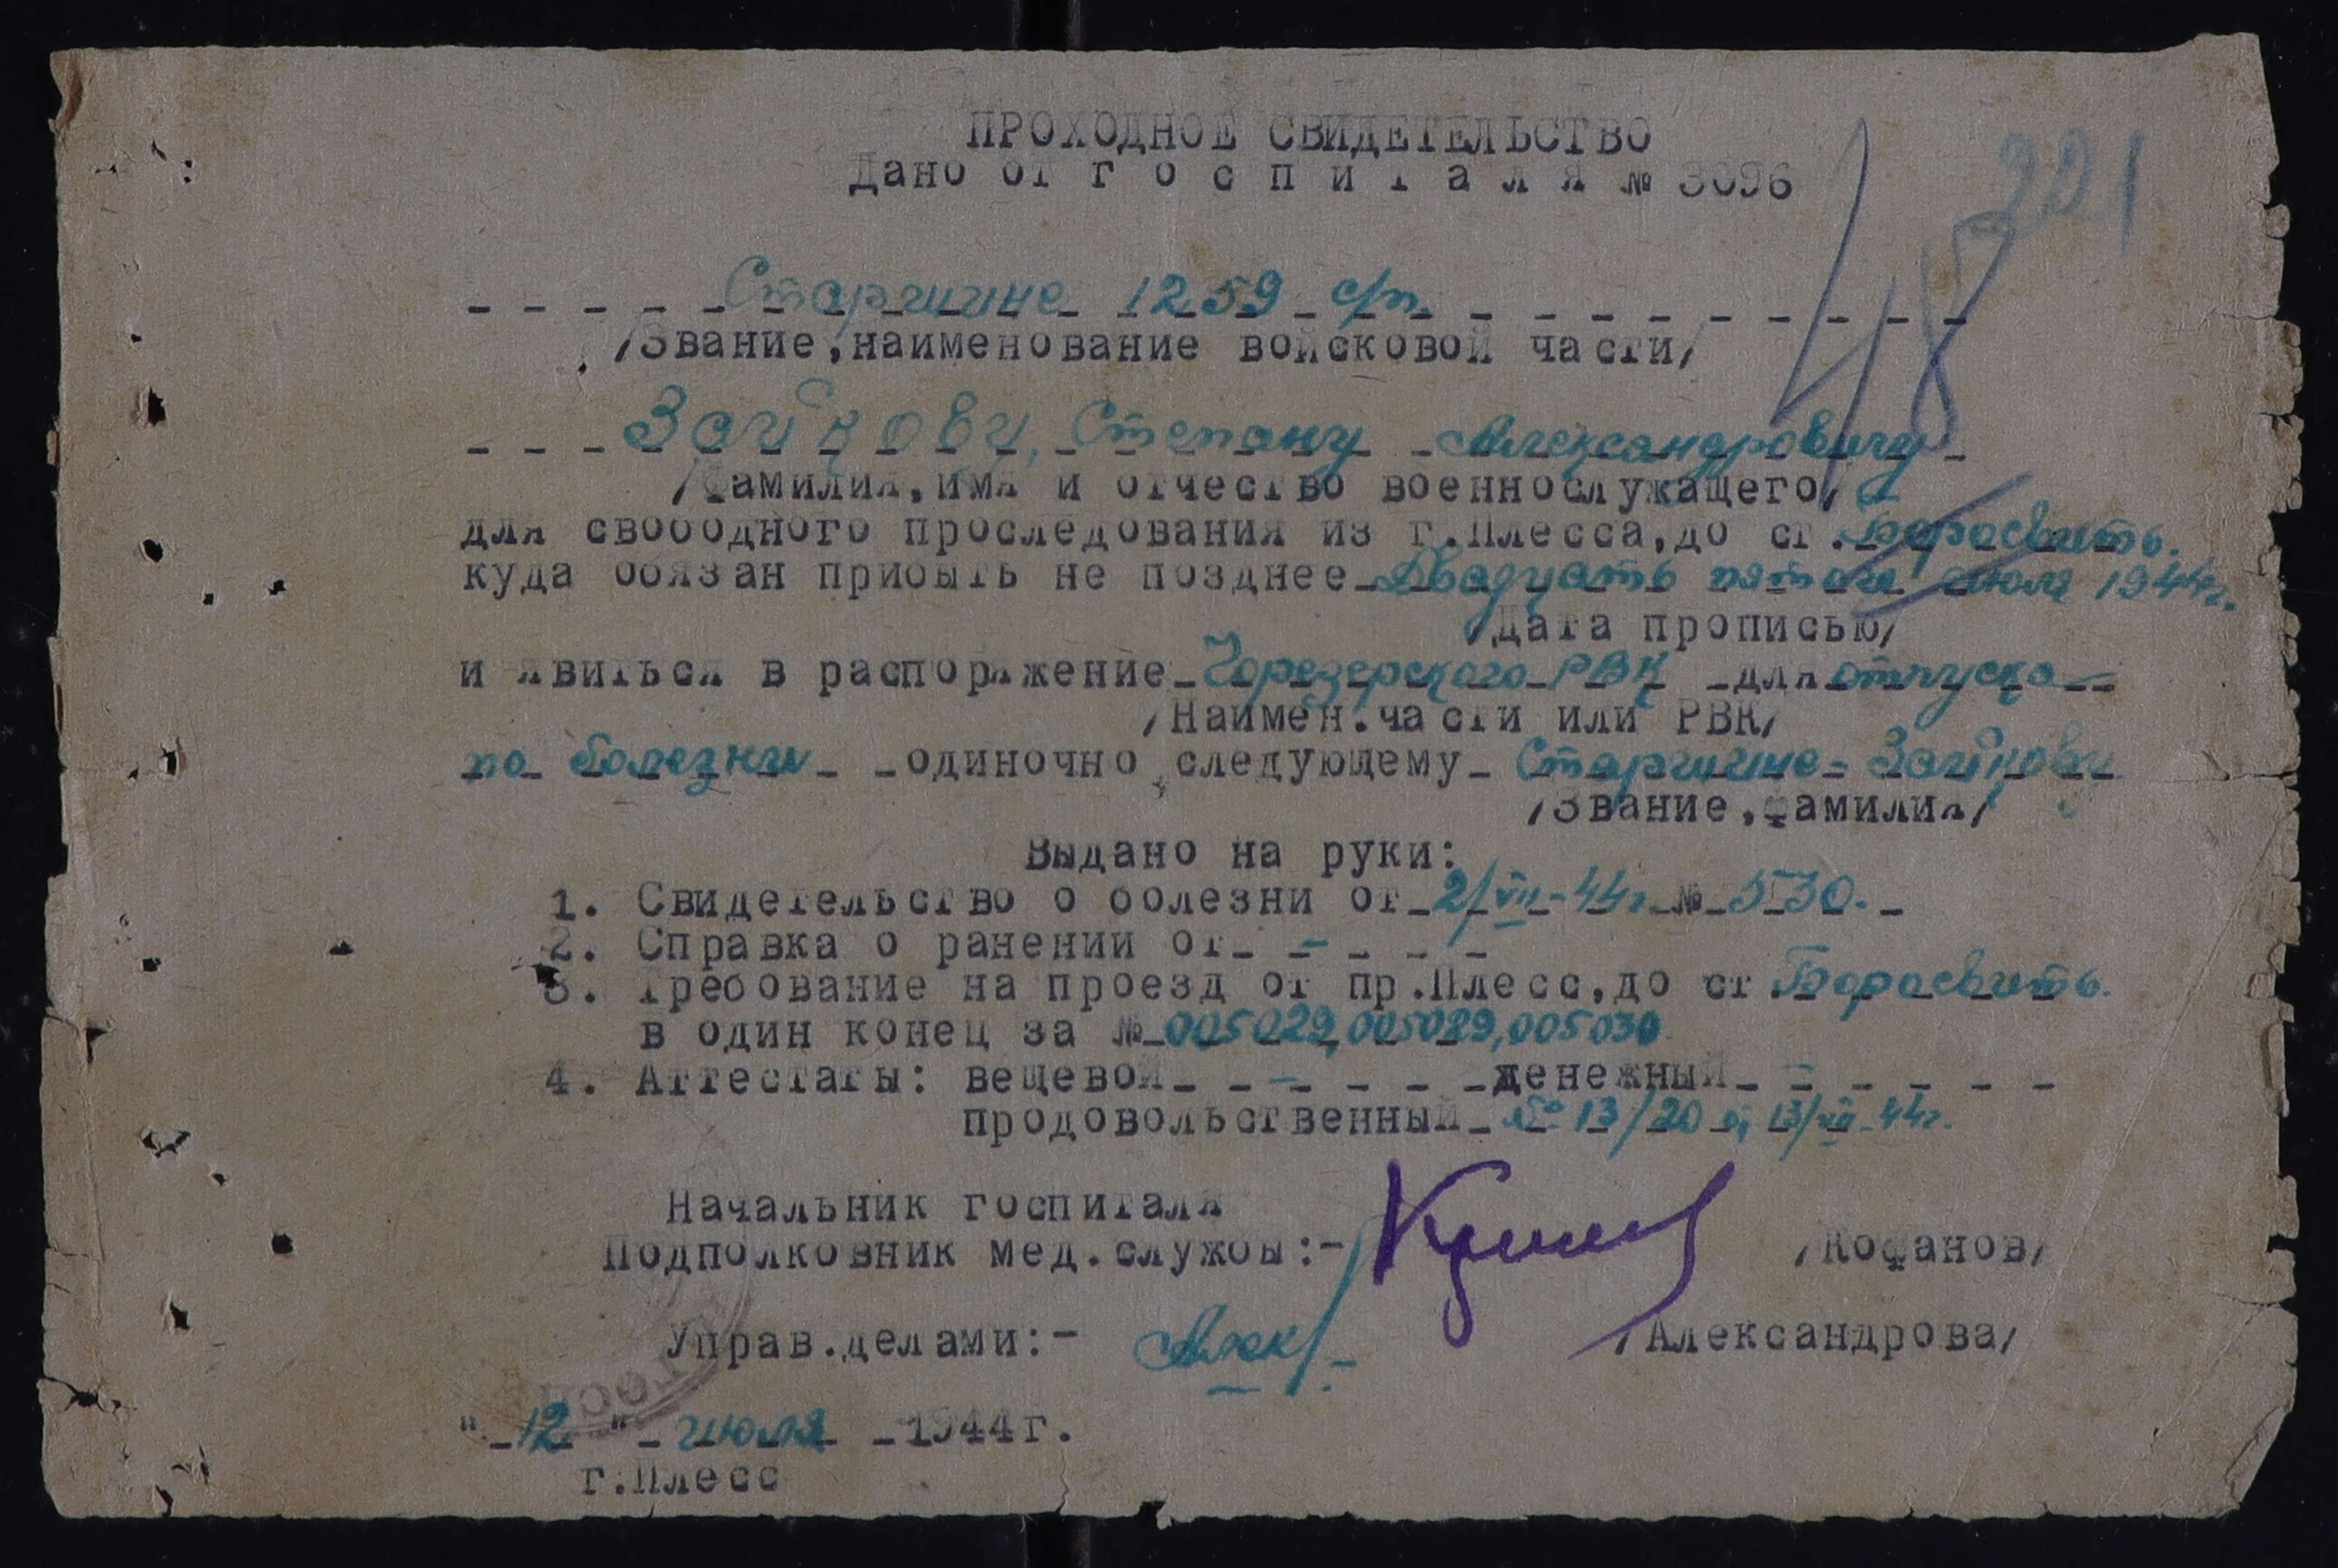 221
48
ПРОХОДНОЕ СВИДЕТЕЛЬСТВО
Дано от г о с п и т а л я № 3096
Старшине 1259 с/п
/Звание,наименование войсковой части/
Зайкову, Степану Александровичу
/Фамилия,имя и отчество военнослужащего/
для свободного проследования из г.Плесса,до ст.
куда обязан прибыть не позднее Двадцать пятого июля 1944г.
/Дата прописью/
и явиться в распоряжение РВК для отпуска
/Наимен.части или РВК/
по болезни одиночно следующему Старшине Зайкову
/Звание,фамилия/
Выдано на руки:
1. Свидетельство о болезни от 2/VII-44г. № 530.
2. Справка о ранении от -
3. Требование на проезд от пр.Плесс,до ст.
в один конец за № 005029,005089,005030
4. Аттестаты: вещевой - денежный -
продовольственный № 13/20 13/VII-44г.
Начальник госпиталя
Подполковник мед.службы:- /Кофанов/
Управ.делами:- Алек /Александрова/
"12" июля 1944г.
г.Плесс